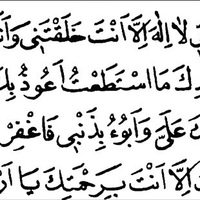 لَا اِلٰهَ اِلَّا اَنْتَ خَلَقْتَنِى وَاَنَا
مَا اسْتَطَعْتُ اَعُوذُ بِكَ
عَلَىَّ وَاَبُوءُ بِذَنْبِى فَاغْفِرْ
اِلَّا اَنْتَ بِرَحْمَتِكَ يَا اَرْ